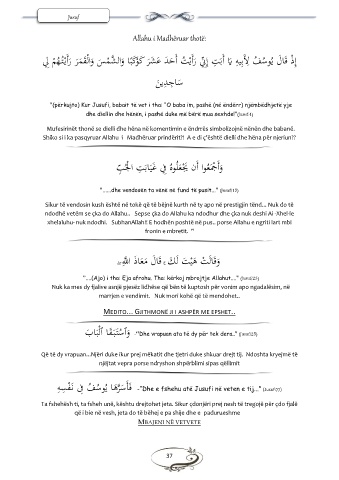 Jusuf
Allahu i Madhëruar thotë:
إِذْ قَالَ يُوسُفُ لِأَبِيهِ يَا أَبَتِ إِنِّي رَأَيْتُ أَحَدَ عَشَرَ كَوْكَبًا وَالشَّمْسَ وَالْقَمَرَ رَأَيْتُهُمْ لِي
سَاجِدِينَ
"(përkujto) Kur Jusufi, babait të vet i tha: "O baba im, pashë (në ëndërr) njëmbëdhjetë yje
dhe diellin dhe hënën, i pashë duke më bërë mua sexhde!"(Jusuf:4)
Mufesirinët thonë se dielli dhe hëna në komentimin e ëndrrës simbolizojnë nënën dhe babanë.
Shiko si i ka pasqyruar Allahu i Madhëruar prindërit?! A e di ç'është dielli dhe hëna për njeriun??
وَأَجْمَعُوا أَن يَجْعَلُوهُ فِي غَيَابَتِ الْجُبِّ
".....dhe vendosën ta vënë në fund të pusit..." (Jusuf:15)
Sikur të vendosin kush është në tokë që të bëjnë kurth në ty apo në prestigjin tënd... Nuk do të
ndodhë vetëm se çka do Allahu.. Sepse çka do Allahu ka ndodhur dhe çka nuk deshi Ai -Xhel-le
xhelaluhu- nuk ndodhi. SubhanAllah!! E hodhën poshtë në pus.. porse Allahu e ngriti lart mbi
fronin e mbretit. "
وَقَالَتْ هَيْتَ لَكَ ۚ قَالَ مَعَاذَ اللَّهِ ۖ
"....(Ajo) i tha: Eja afrohu. Tha: kërkoj mbrojtje Allahut..." (Jusuf:23)
Nuk ka mes dy fjalive asnjë pjesëz lidhëse që bën të kuptosh për vonim apo ngadalësim, në
marrjen e vendimit. Nuk mori kohë që të mendohet..
MEDITO... GJITHMONË JI I ASHPËR ME EPSHET..
وَاسْتَبَقَا الْبَابَ -"Dhe vrapuan ata të dy për tek dera.." (Jusuf:25)
Që të dy vrapuan...Njëri duke ikur prej mëkatit dhe tjetri duke shkuar drejt tij. Ndoshta kryejmë të
njëjtat vepra porse ndryshon shpërblimi sipas qëllimit
فَأَسَرَّهَا يُوسُفُ فِي نَفْسِهِ -"Dhe e fshehu atë Jusufi në veten e tij..." (Jusuf:77)
Ta fshehësh ti, ta fsheh unë, kështu drejtohet jeta. Sikur çdonjëri prej nesh të tregojë për çdo fjalë
që i bie në vesh, jeta do të bëhej e pa shije dhe e padurueshme
MBAJENI NË VETVETE
37